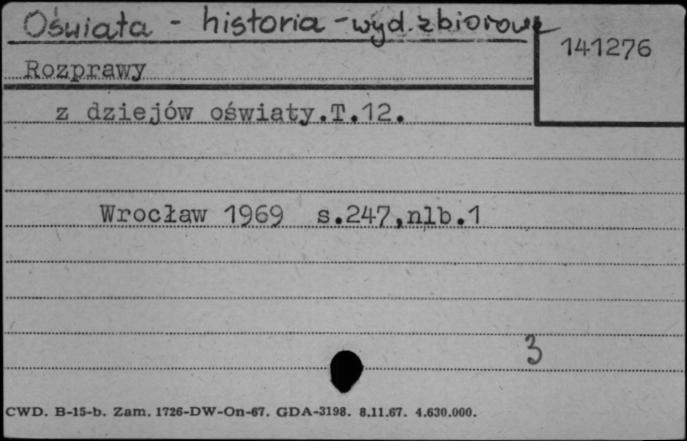 Oświata - historia - wyd. zbiorowe
141276
Rozprawy
z dziejów oświaty.T.12.
Wrocław 1969 s.247,nlb.1
3
CWD. B-15-b. Zam. 1726-DW-On-67. GDA-3198. 8.11.67. 4.630.000.